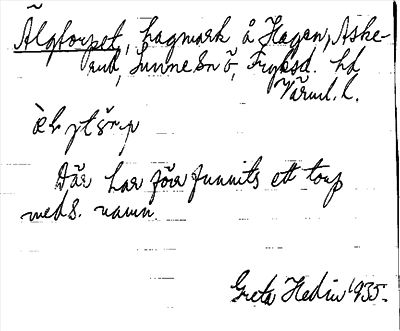 Älgtorpet, hagmark å Hagen, Aske-
rud, Sunne sn ö, Fryksd. hd
Värml. l.
Där har förr funnits ett torp
med s. namn.
Greta Hedin 1935.